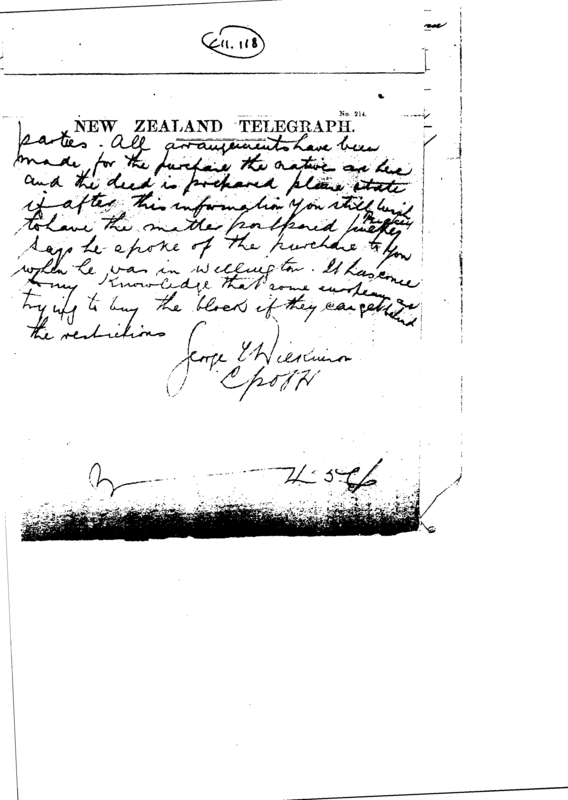 C11.118
No. 214.
NEW ZEALAND TELEGRAPH.
parties. All arrangements have been
made for the purchase the natives are here
and the deed is prepared please state
if after this information you still wish
to have the matter postponed
says he spoke of the purchase to you
when he was in Wellington. It has come
to my knowledge that some europeans are
trying to buy the block if they can get behind
the restrictions
George T Wilkinson